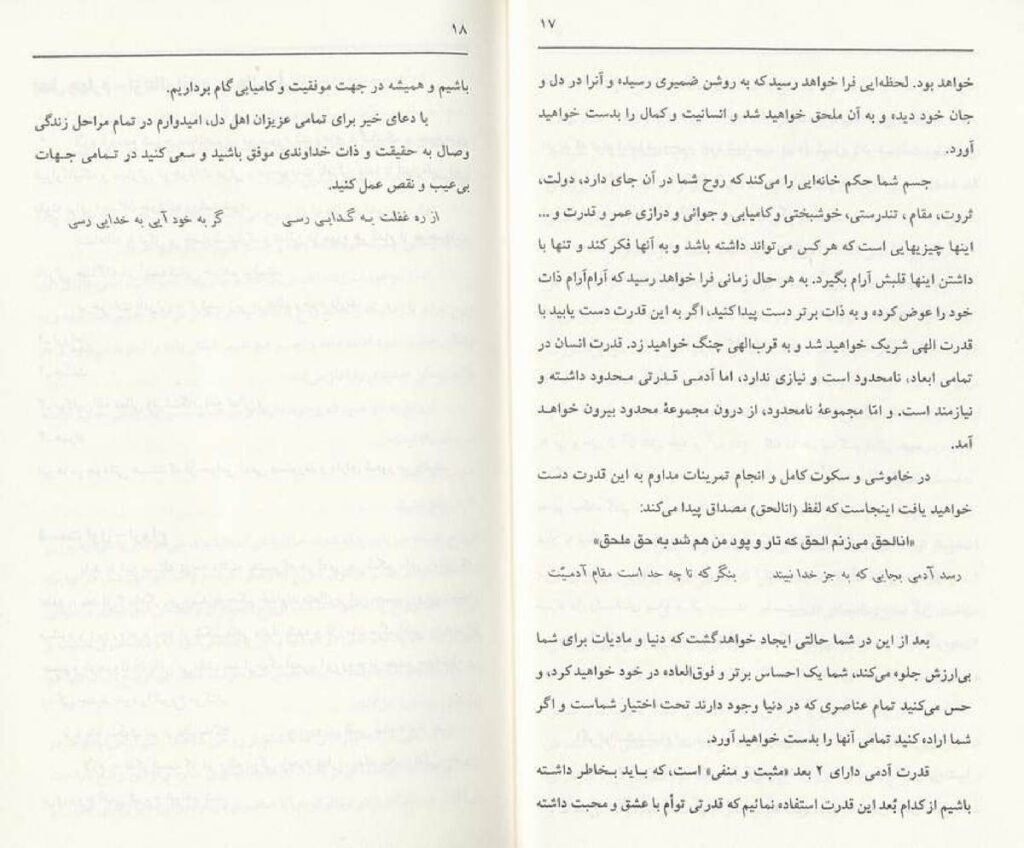 ۱۷
خواهد بود. لحظه‌ایی فرا خواهد رسید که به روشن ضمیری رسیده و آنرا در دل و
جان خود دیده و به آن ملحق خواهید شد و انسانیت و کمال را بدست خواهید
آورد.
جسم شما حکم خانه‌ایی را می‌کند که روح شما در آن جای دارد، دولت،
ثروت، مقام ، تندرستی، خوشبختی و کامیابی و جوانی و درازی عمر و قدرت و ...
اینها چیزیهایی است که هر کس می‌تواند داشته باشد و به آنها فکر کند و تنها با
داشتن اینها قلبش آرام بگیرد. به هر حال زمانی فرا خواهد رسید که آرام‌آرام ذات
خود را عوض کرده و به ذات برتر دست پیدا کنید، اگر به این قدرت دست یابید با
قدرت الهی شریک خواهید شد و به قرب‌الهی چنگ خواهید زد. قدرت انسان در
تمامی ابعاد، نامحدود است و نیازی ندارد، اما آدمی قدرتی محدود داشته و
نیازمند است. و امّا مجموعهٔ نامحدود، از درون مجموعهٔ محدود بیرون خواهد
آمد.
در خاموشی و سکوت کامل و انجام تمرینات مداوم به این قدرت دست
خواهید یافت اینجاست که لفظ (اناالحق) مصداق پیدا می‌کند:
«اناالحق می‌زنم الحق که تار و پود من هم شد به حق ملحق»
رسد آدمی بجایی که به جز خدا نبیند بنگر که تا چه حد است مقام آدمیّت
بعد از این در شما حالتی ایجاد خواهد گشت که دنیا و مادیات برای شما
بی‌ارزش جلوه می‌کند، شما یک احساس برتر و فوق‌العاده در خود خواهید کرد، و
حس می‌کنید تمام عناصری که در دنیا وجود دارند تحت اختیار شماست و اگر
شما اراده کنید تمامی آنها را بدست خواهید آورد.
قدرت آدمی دارای ۲ بعد «مثبت و منفی» است، که باید بخاطر داشته
باشیم از کدام بُعد این قدرت استفاده نمائیم که قدرتی توأم با عشق و محبت داشته
۱۸
باشیم و همیشه در جهت موفقیت و کامیابی گام برداریم.
با دعای خیر برای تمامی عزیزان اهل دل، امیدوارم در تمام مراحل زندگی
وصال به حقیقت و ذات خداوندی موفق باشید و سعی کنید در تمامی جهات
بی‌عیب و نقص عمل کنید.
از ره غفلت به گدایی رسی گر به خود آیی به خدایی رسی